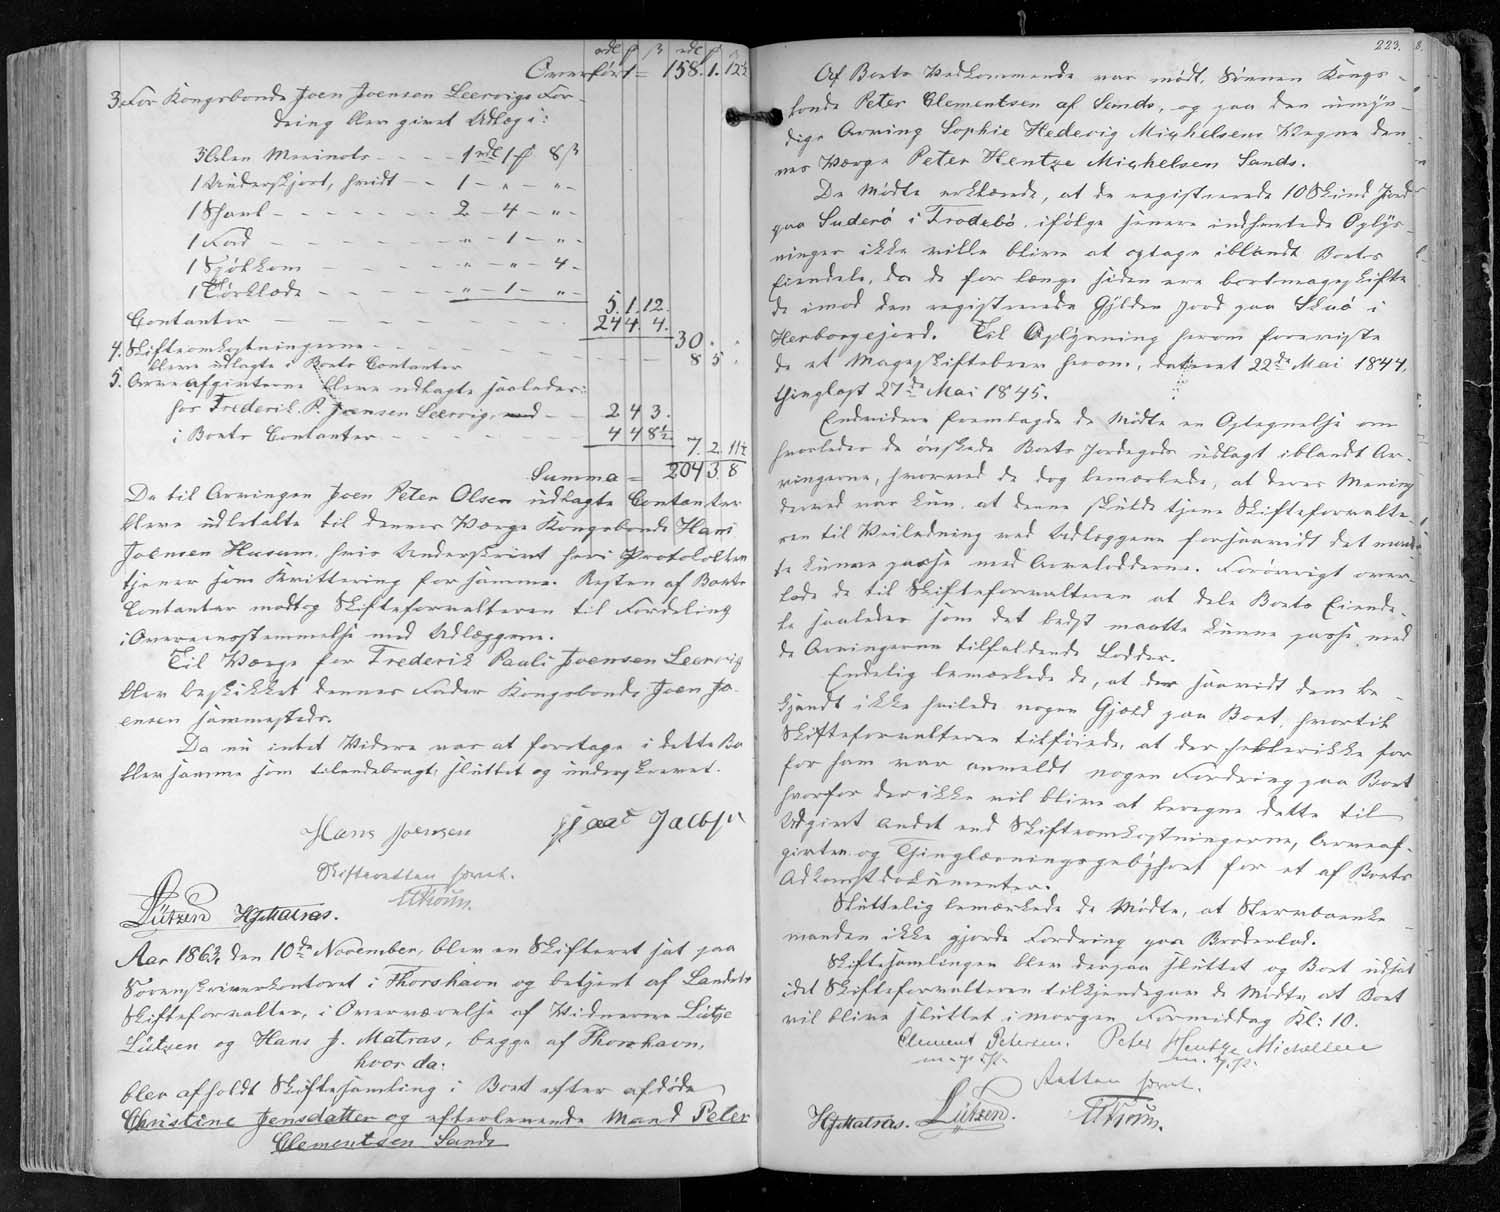 rdl ſ ß rdl ſ ß
Overført = 158. 1. 12½
3. For Kongsbonde Joen Joensen Leervigs For-
dring blev givet Udlæg i:
3 Alen Merinols - - - 1 rdl 1 ſ 8 ß
1 Underskjort, hvidt - - 1 - „ - „ -
1 Shavl - - - - 2 - 4 - „ -
1 Ford - - - - „ - 1 - „ -
1 - - - - „ - „ - 4 -
1 Tørklæde - - - - „ - 1 - „ -
5. 1. 12.
Contanter - - - - 24 4 4.
30. „ „
4. Skifteomkostningerne - - - - 8 5 „
bleve udlagte i Boets Contanter
5. Arveafgifterne bleve udlagte saaledes:
hos Frederik P. Joensen Leervig, - - 2 4 3.
i Boets Contanter - - - - 4 4 8½
7. 2. 11½
Summa = 204 3 8
De til Arvingen Joen Peter Olsen udlagte Contanter
bleve udbetalte til dennes Værge Kongsbonde Hans
Joensen Husum, hvis Underskrivt her i Protokollen
tjener som Kvittering for samme. Resten af Boets
Contanter modtog Skifteforvalteren til Fordeling
i Overeensstemmelse med Udlæggene.
Til Værge for Frederik Pauli Joensen Leervig
blev beskikket dennes Fader Kongsbonde Joen Jo-
ensen sammesteds.
Da nu intet Videre var at foretage i dette Bo
blev samme som tilendebragt, sluttet og underskrevet.
Hans Joensen Jacobsen
Skifteretten hævet.
Lützen HJMatras.
Aar 1863 den 10de November, blev en Skifteret sat paa
Sorenskriverkontoret i Thorshavn og betjent af Landets
Skifteforvalter, i Overværelse af Vidnerne Lütje
Lützen og Hans J. Matras, begge af Thorshavn,
hvor da:
blev afholdt Skiftesamling i Boet efter afdøde
Christine Jensdatter og efterlevende Mand Peter
Clementsen Sands
223.
Af Boets Vedkommende var mødt, Sønnen Kongs-
bonde Peter Clementsen af Sands, og paa den umyn-
dige Arving Sophie Hedevig Mighelsens Vegne den-
nes Værge Peter Hentze Mighelsen Sands.
De Mødte erklærede, at de registrerede 10 Skind Jord
paa Suderø i Frodebø, ifølge senere indhentede Oplys-
ninger ikke ville blive at optage iblandt Boets
Eiendele, da de for længe siden ere bortmageskifte-
de imod den registrerede Gylden Jord paa Skuø i
Herborgejord. Til Oplysning herom foreviste
de et Mageskiftebrev herom, dateret 22de Mai 1844,
thinglæst 27de Mai 1845.
Endvidere fremlagde de Mødte en Optegnelse om
hvorledes de ønskede Boets Jordegods udlagt iblandt Ar-
vingerne, hvorved de dog bemærkede, at deres Mening
derved var kun, at denne skulde tjene Skifteforvalte-
ren til Veiledning ved Udlæggene forsaavidt det maat-
te kunne passe med Arvelodderne. Forøvrigt over-
lode de til Skifteforvalteren at dele Boets Eiende-
le saaledes som det bedst maatte kunne passe med
de Arvingerne tilfaldende Lodder.
Endelig bemærkede de, at der saavidt dem be-
kjendt ikke hvilede nogen Gjæld paa Boet, hvortil
Skifteforvalteren tilføiede, at der hellerikke for
for ham var anmeldt nogen Fordring paa Boet
hvorfor der ikke vil blive at beregne dette til
Udgivt andet end Skifteomkostningerne, Arveaf-
giften og Thinglæsningsgebyhret for et af Boets
Adkomstdokumenter.
Sluttelig bemærkede de Mødte, at Stervboenke-
manden ikke gjorde Fordring paa Broderlod.
Skiftesamlingen blev derpaa sluttet og Boet udsat
idet Skifteforvalteren tilkjendegav de Mødte at Boet
vil blive sluttet i morgen Formiddag Kl: 10.
Clement Petersen. Peter Hentze Michelsen
m. f. P. m. f. P.
Retten hævet.
HJMatras. Lützen.